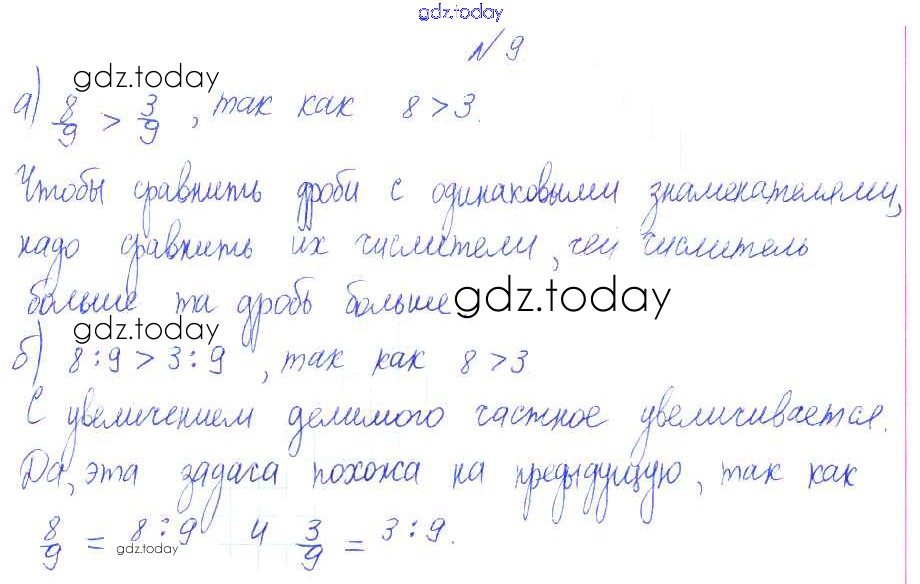 gdz.today
№ 9
gdz.today
а) 8/9 > 3/9, так как 8 > 3.
Чтобы сравнить дроби с одинаковыми знаменателями,
надо сравнить их числители, чей числитель
больше та дробь больше gdz.today
gdz.today
б) 8 : 9 > 3 : 9, так как 8 > 3
С увеличением делимого частное увеличивается.
Да, эта задача похожа на предыдущую, так как
8/9 = 8 : 9 и 3/9 = 3 : 9.
gdz.today